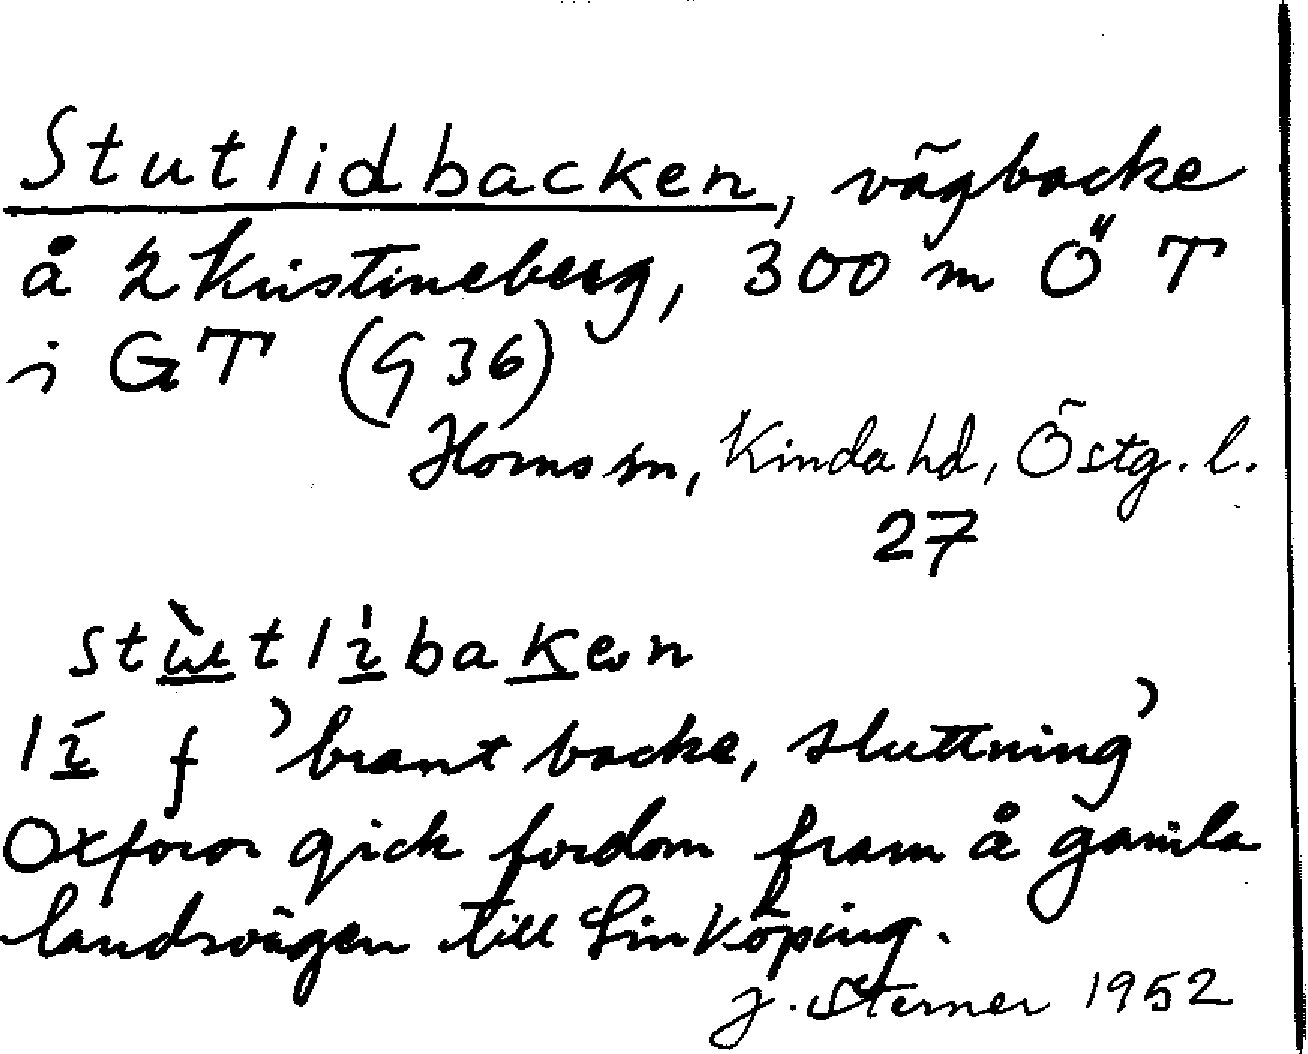 Stutlidbacken, vägbacke
å 2 Kristineberg, 300 m Ö T
i GT (G 36)
Horns sn, Kinda hd, Östg. l.
27
stùtlìbaken
lī f 'brant backe, sluttning'
Oxforor gick fordom fram å gamla
landsvägen till Linköping.
J. Sterner 1952